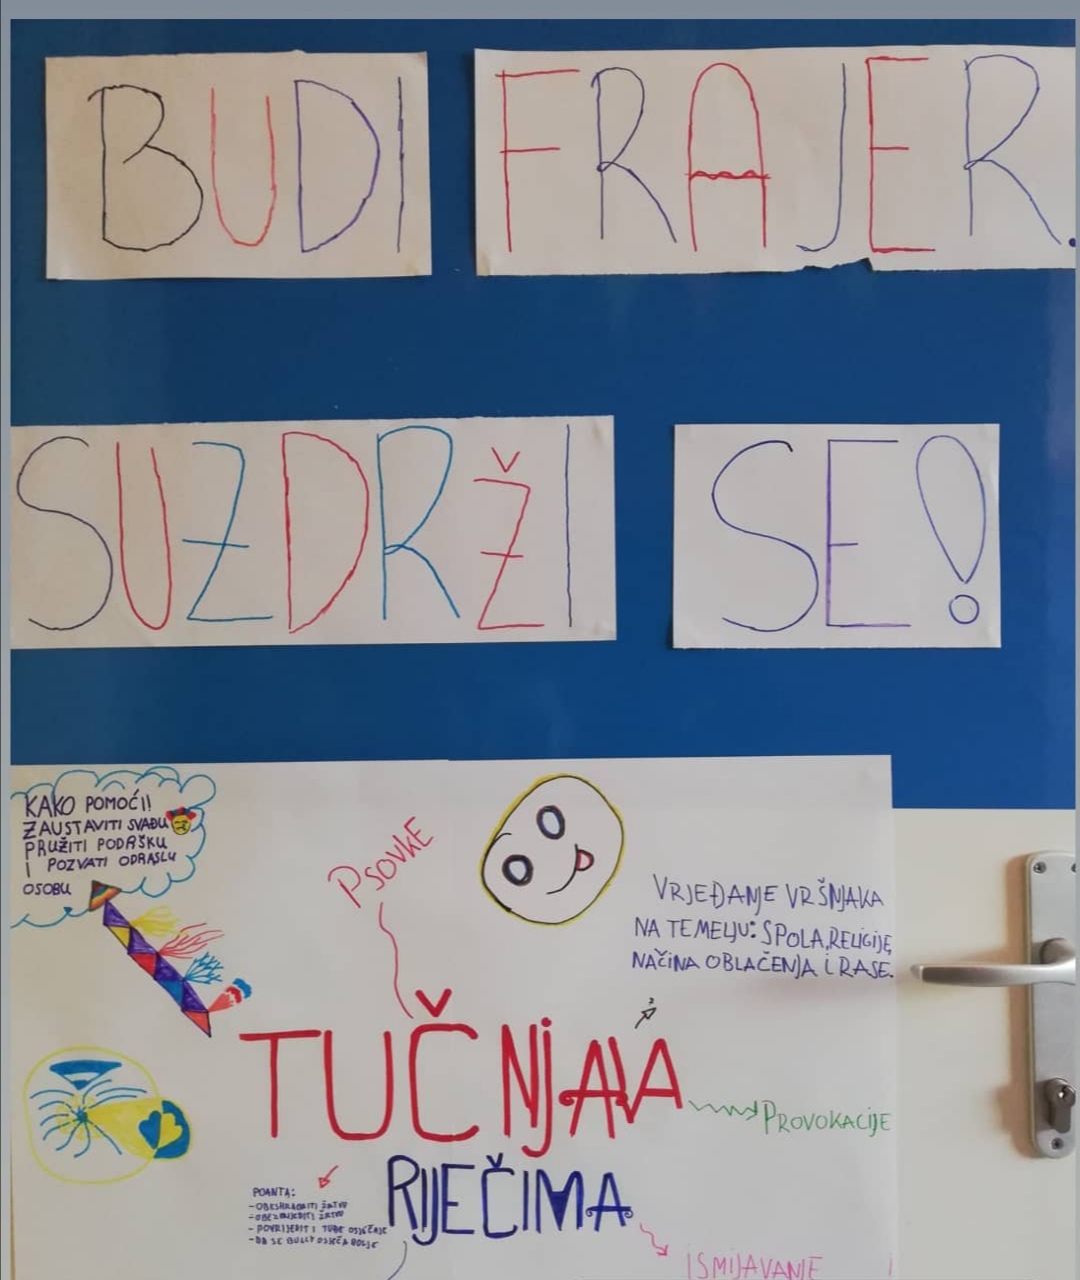 BUDI FRAJER.
SUZDRŽI SE!
KAKO POMOĆI!
ZAUSTAVITI SVAĐU
PRUŽITI PODRŠKU
I POZVATI ODRASLU
OSOBU
PSOVKE
VRJEĐANJE VRŠNJAKA
NA TEMELJU: SPOLA, RELIGIJE,
NAČINA OBLAČENJA I RASE.
TUČNJAVA
PROVOKACIJE
RIJEČIMA
POANTA:
- OBESHRABRITI ŽRTVU
- OBEZVRIJEDITI ŽRTVU
- POVRIJEDIT I TUĐE OSJEĆAJE
- DA SE BULLY OSJEĆA BOLJE
ISMIJAVANJE